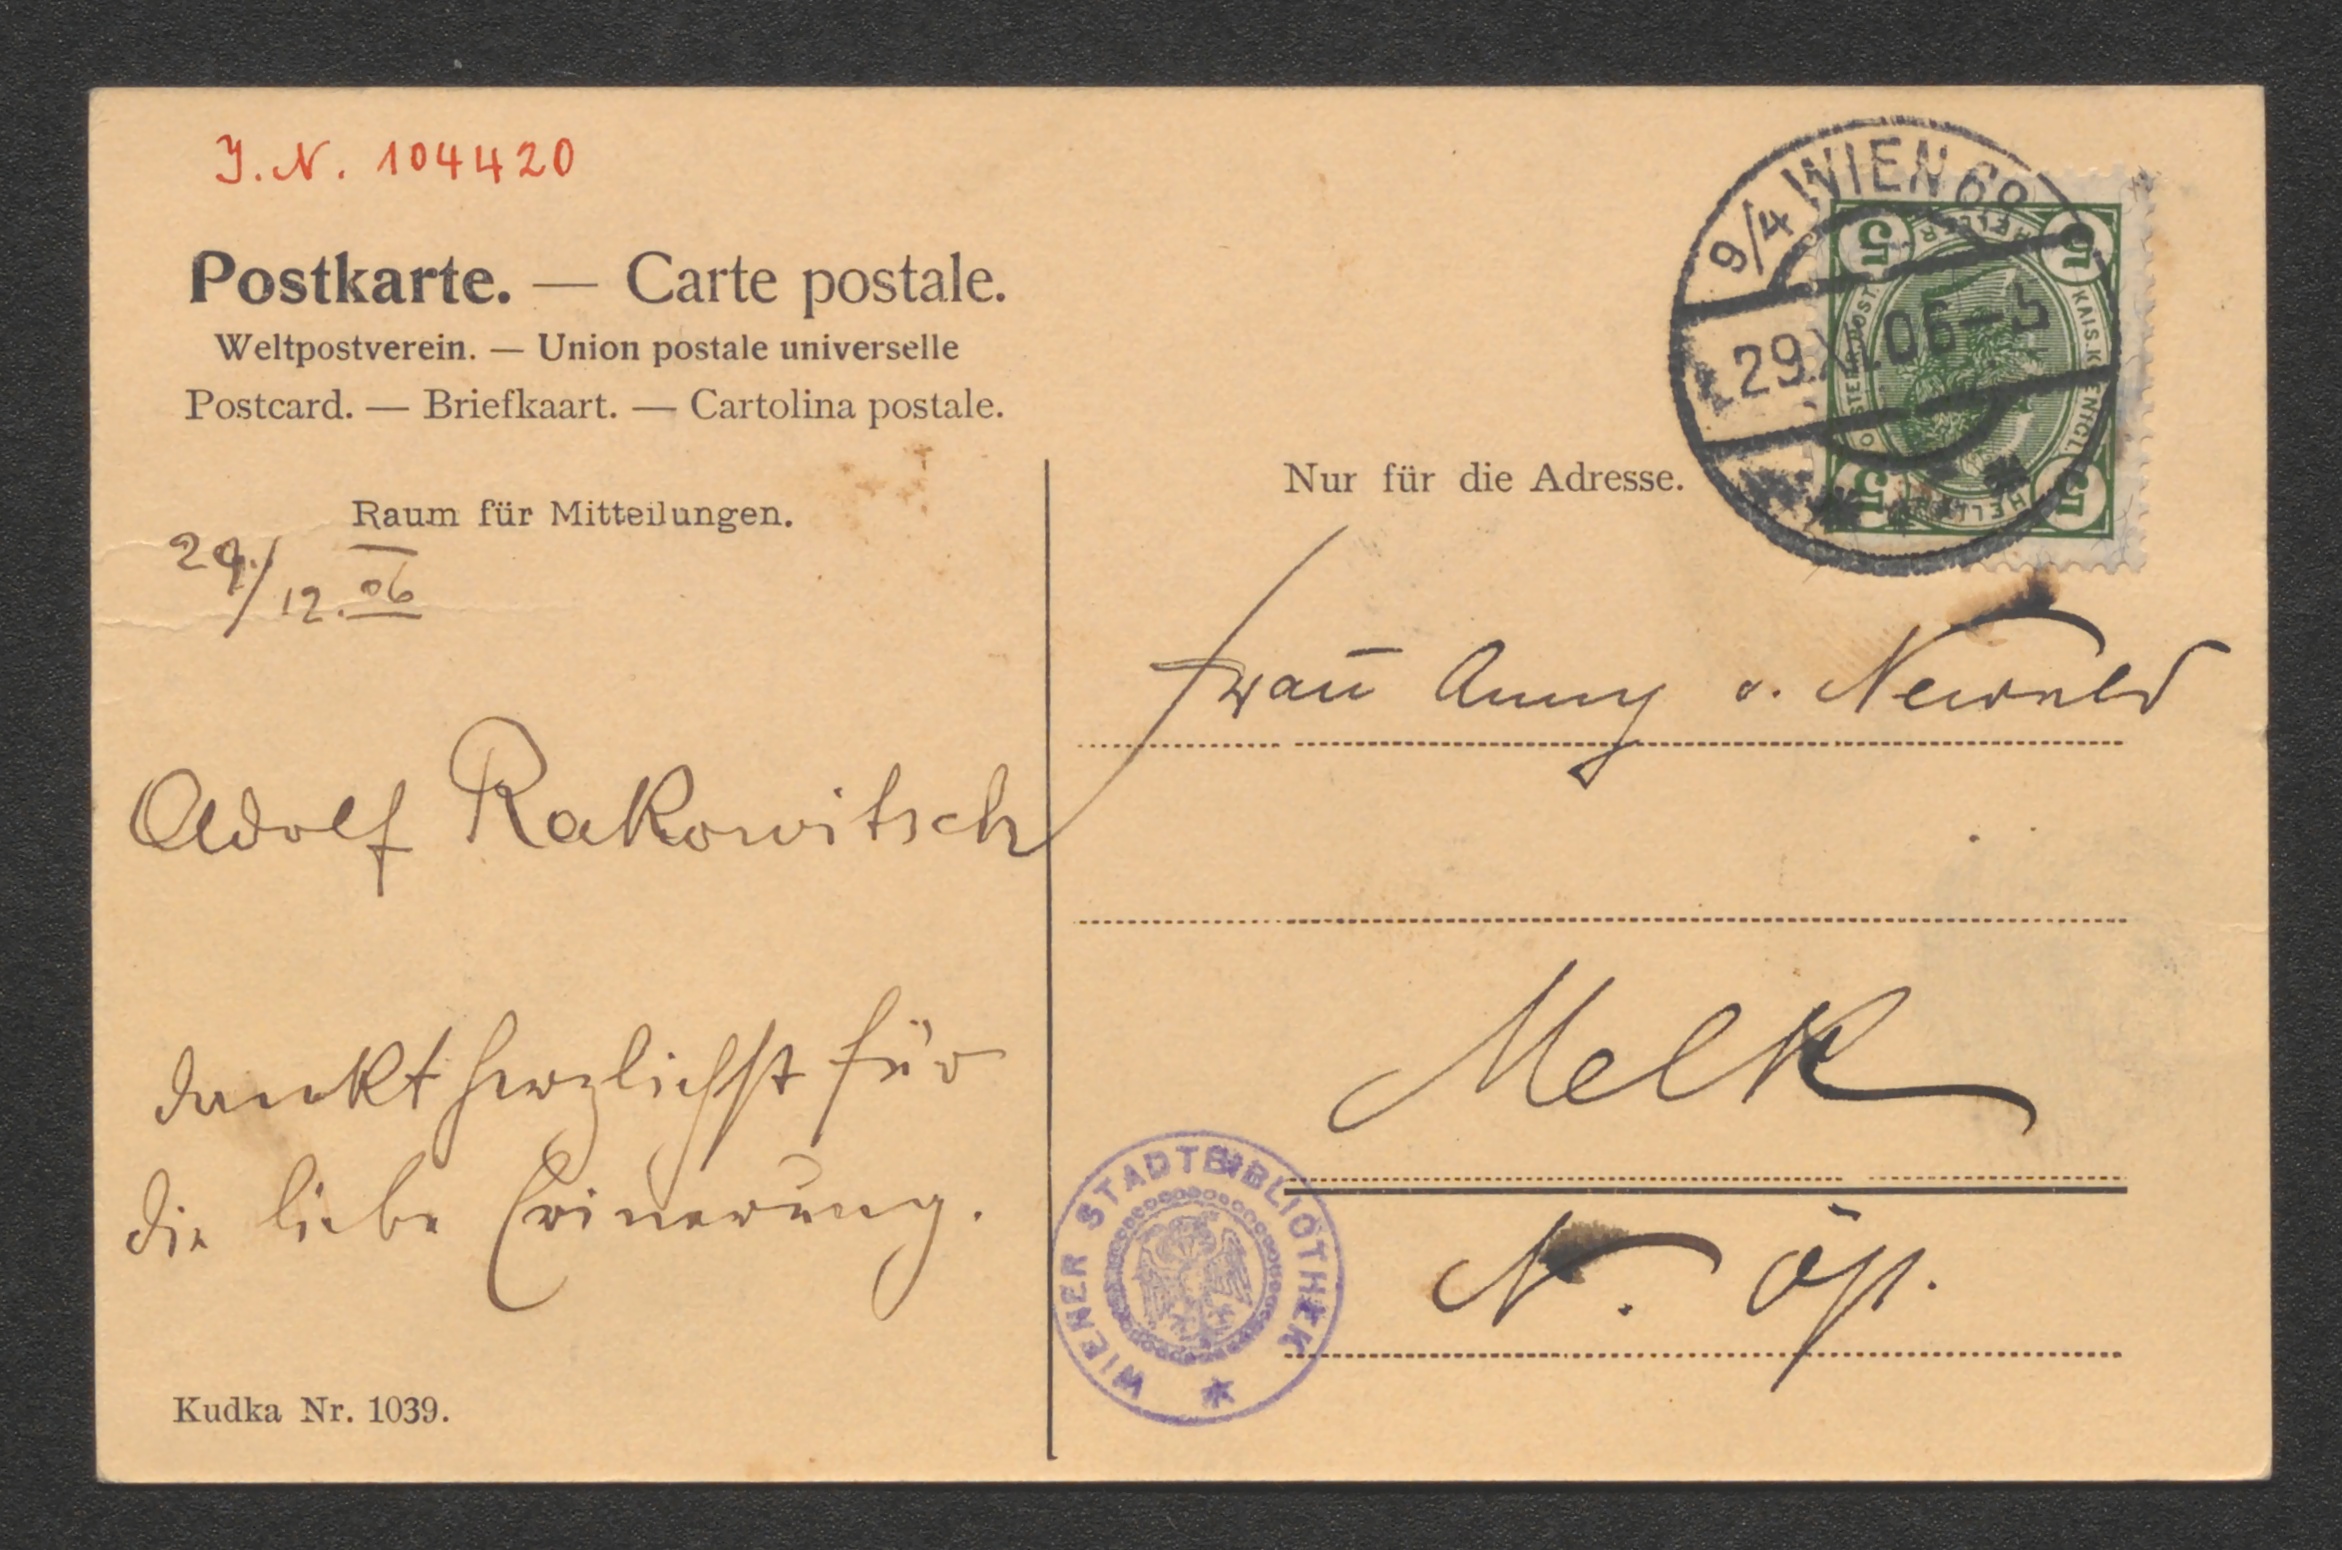 J. N. 104420
Postkarte. — Carte postale.
Weltpostverein. — Union postale universelle
Postcard. — Briefkaart. — Cartolina postale.
Raum für Mitteilungen.
29./12. 06
Adolf Rakowitsch
dankt herzlichst für
die liebe Erinerung.
Kudka Nr. 1039.
9/4 WIEN
29 XII 06
5 5
HELLER
KAIS. KOENIGL.
OESTERR. POST.
HELLER
5 5
Nur für die Adresse.
Frau Anny v. Newald
Melk
N. Öst.
WIENER STADTBIBLIOTHEK